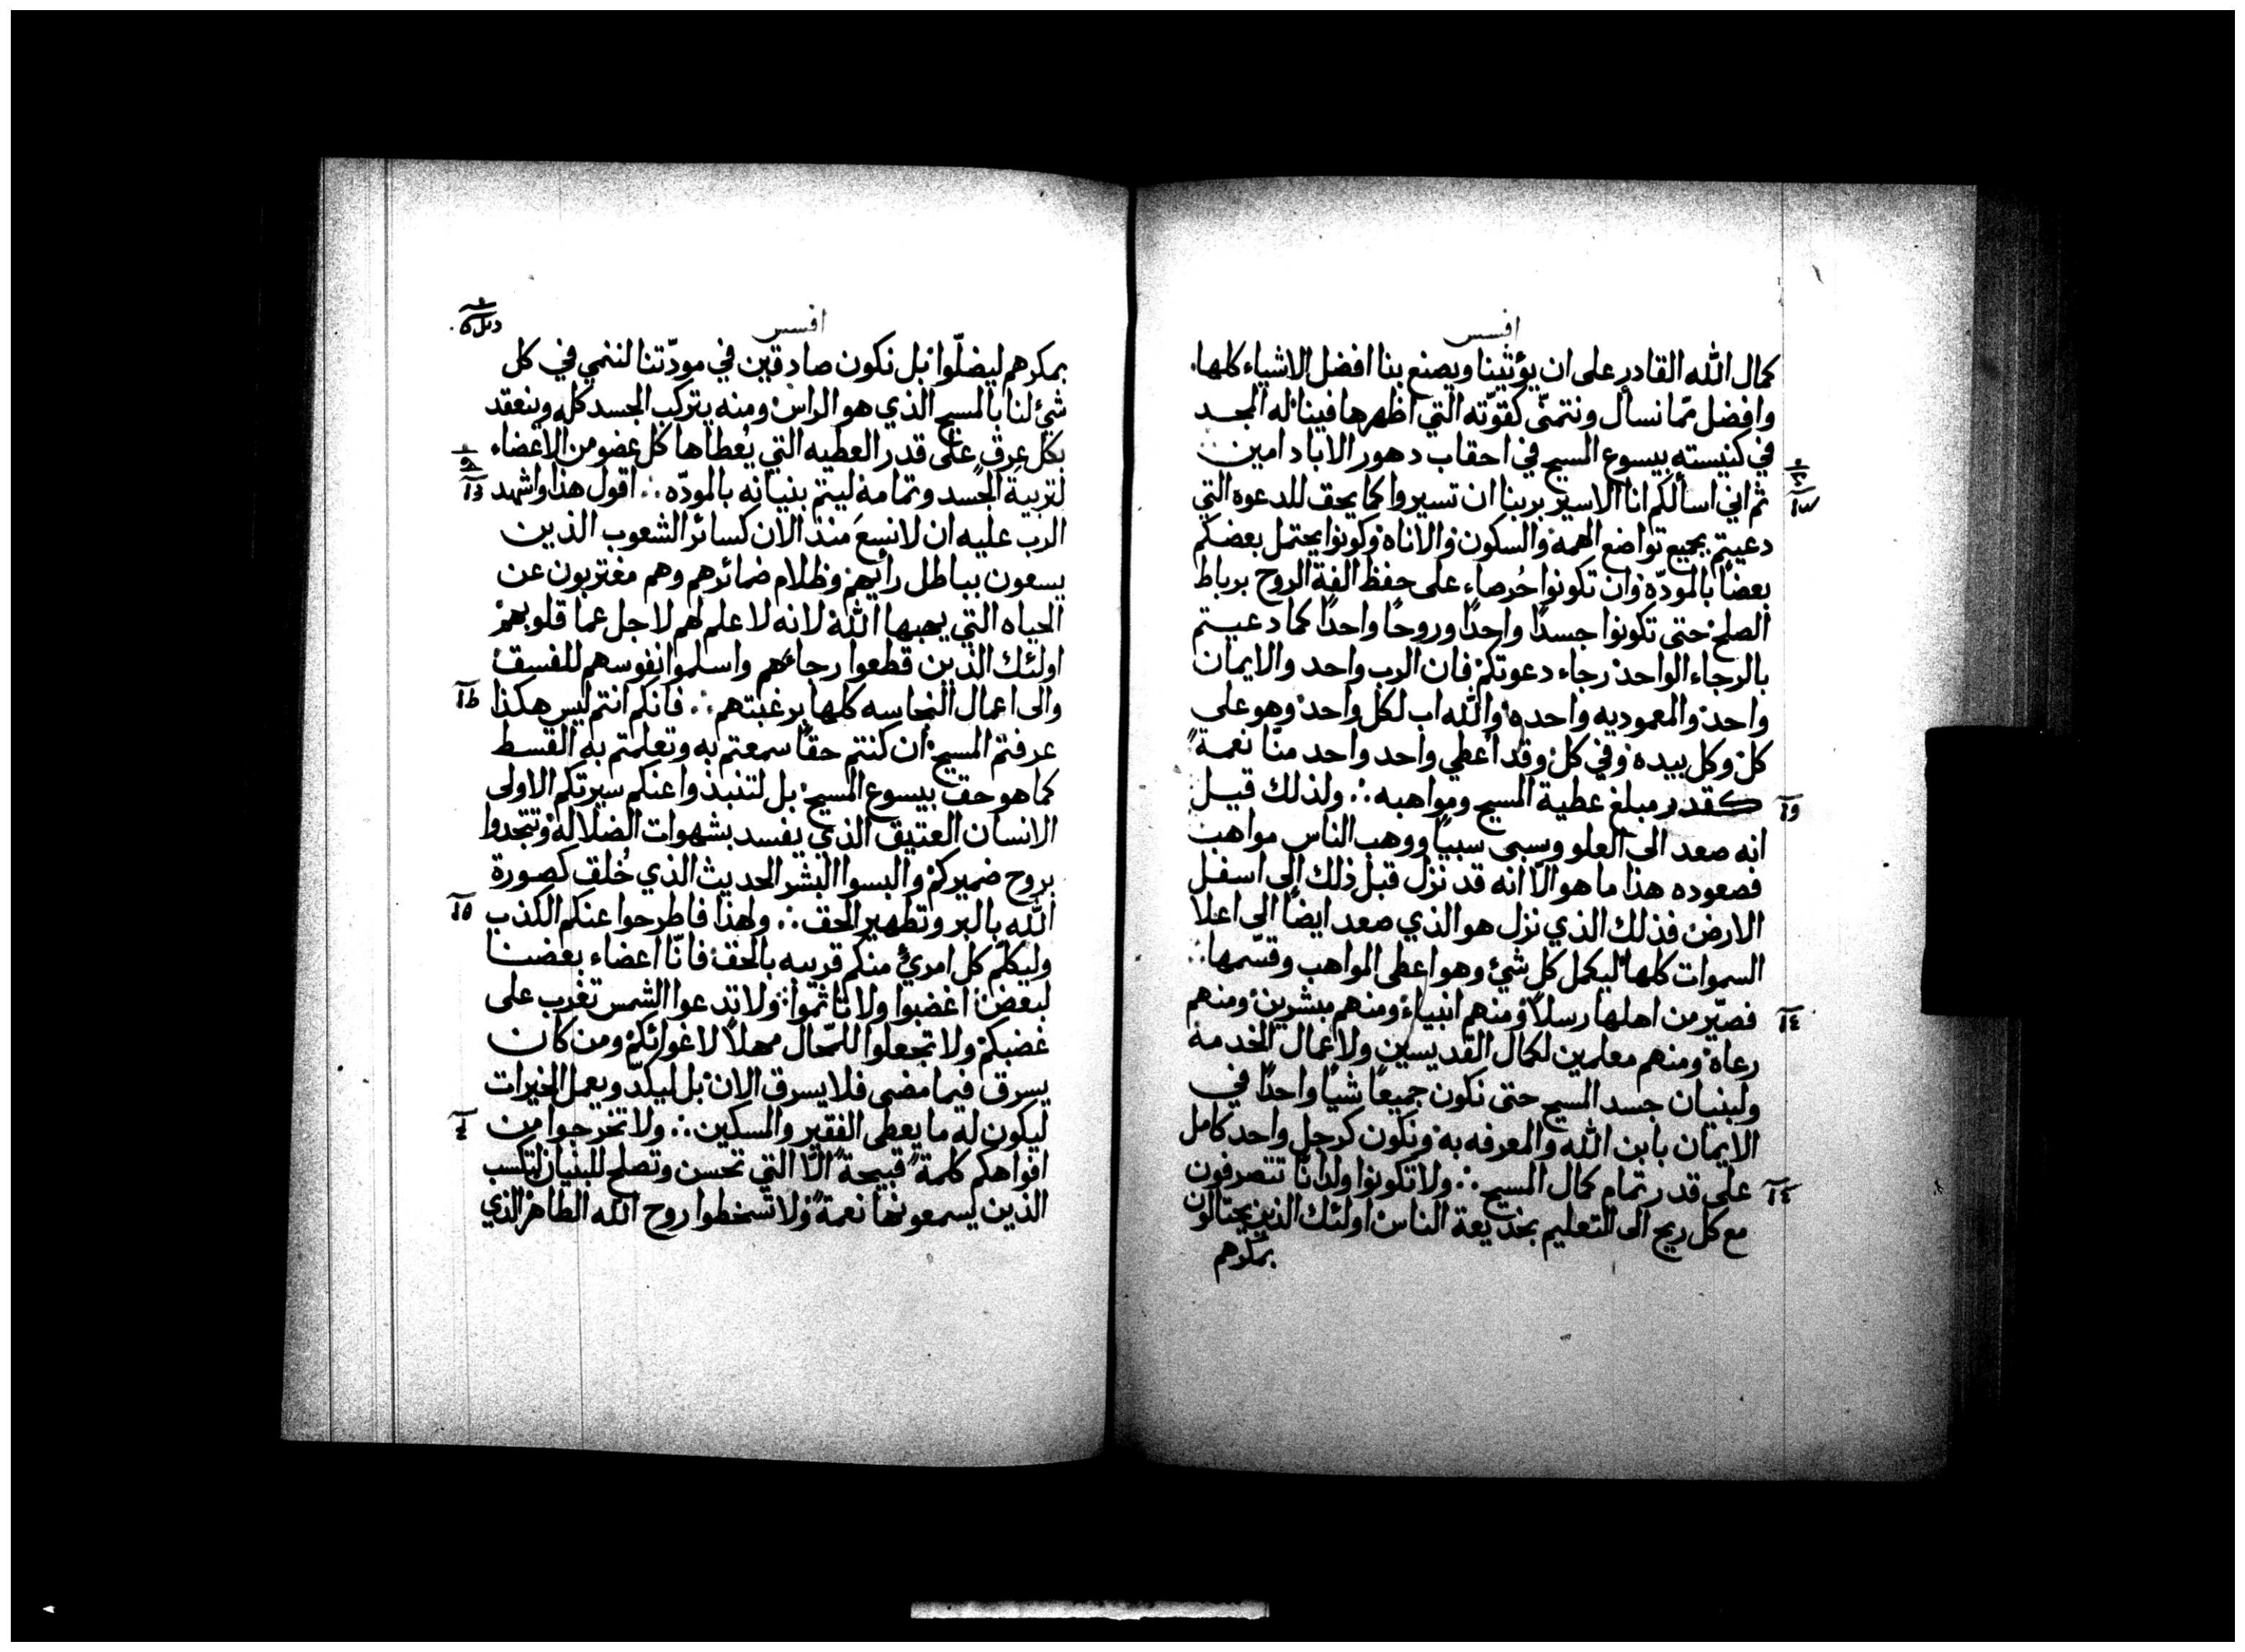 افسس
كمال الله القادر على ان يؤتينا ويصنع بنا افضل الاشياء كلها.
وافضل ممّا نسأل ونتمنّى كقوّته التي اظهرها فينا له المجد
في كنيسته بيسوع المسيح في احقاب دهور الاباد امين
ثم اني اسألكم انا الاسير بربنا ان تسيروا كما يحق للدعوه التي
دعيتم بجميع تواضع الهمة والسكون والاناه وكونوا يحتمل بعضكم
بعضا بالمودّه وان تكونوا حُرصاء على حفظ الفة الروح برباط
الصلح حتى تكونوا جسدًا واحدًا وروحًا واحدًا كما دعيتم
بالرجاء الواحد رجاء دعوتكم فان الرب واحد والايمان
واحد والمعموديه واحده والله اب لكل واحد وهو على
كل وكل بيده وفي كل وقد اعطي واحد واحد منّا نعمةً
كقدر مبلغ عطية المسيح ومواهبه ∴ ولذلك قيل
انه صعد الى العلو وسبى سبيًا ووهب الناس مواهب
فصعوده هذا ما هو الّا انه قد نزل قبل ذلك إلى اسفل
الارض فذلك الذي نزل هو الذي صعد ايضًا الى اعلا
السموات كلها ليكمل كل شئ وهو اعطى المواهب وقسّمها ∴
فصيّر من اهلها رسلاً ومنهم انبياء ومنهم مبشرين ومنهم
رعاه ومنهم معلمين لكمال القديسين ولاعمال الخدمة
ولبنيان جسد المسيح حتى نكون جميعًا شيًا واحدًا في
الايمان بابن الله والمعرفه به ونكون كرجل واحد كامل
على قدر تمام كمال المسيح ∴ ولا تكونوا ولدانًا تتصرفون
مع كل ريح الى التعليم بخديعة الناس اولئك الذين يحتالون
بمكرهم
افسس
بمكرهم ليضلّوا بل نكون صادقين في مودّتنا لننمي في كل
شئ لنا بالمسيح الذي هو الراس ومنه يتركب الجسد كله وينعقد
بكل عرق على قدر العطيه التي يُعطاها كل عضو من الاعضاء
لتربية الجسد وتمامه ليتم بنيانه بالمودّه ∴ اقول هذا واشهد
الرب عليه ان لا نسعَ منذ الان كسائر الشعوب الذين
يسعون بباطل رأيهم وظلام ضمائرهم وهم مغتربون عن
الحياه التي يحبها الله لانه لا علم لهم لاجل عما قلوبهم
اولئك الذين قطعوا رجاءهم واسلموا نفوسهم للفسق
والى اعمال النجاسه كلها برغبتهم ∴ فانكم انتم ليس هكذا
عرفتم المسيح ان كنتم حقًا سمعتم به وتعلمتم به القسط
كما هو حق بيسوع المسيح بل لتنبذوا عنكم سيرتكم الاولى
الانسان العتيق الذي يفسد بشهوات الضلاله وتتجددوا
بروح ضميركم والبسوا البشر الحديث الذي خُلق كصورة
الله بالبر وتطهير الحق ∴ ولهذا فاطرحوا عنكم الكذب
وليكلّم كل امرئ منكم قريبه بالحق فانّا اعضاء بعضنا
لبعض اغضبوا ولا تأثموا ولا تدعوا الشمس تغرب على
غضبكم ولا تجعلوا للمحال مهلاً لاغوائكم ومن كان
يسرق فيما مضى فلا يسرق الان بل ليكدّ ويعمل الخيرات
ليكون له ما يعطى الفقير والمسكين ∴ ولا تخرجوا من
افواهكم كلمةً قبيحةً الّا التي تحسن وتصلح للبنيان لتكسب
الذين يسمعونها نعمةً ولا تسخطوا روح الله الطاهر الذي